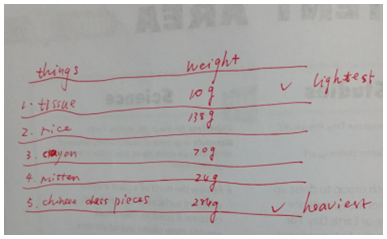 things weight
1. tissue 10g ✓ lightest
2. rice 135g
3. crayon 70g
4. mitten 24g
5. chinese chess pieces g ✓ heaviest
Science